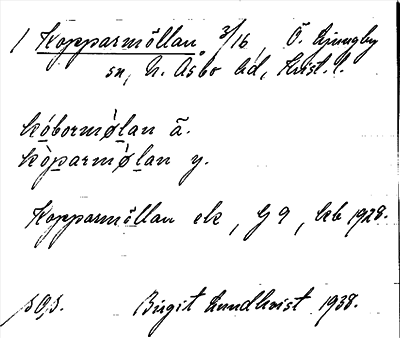 1 Kopparmöllan 3/16, Ö. Ljungby
sn, N. Åsbo hd, Krist. l.
kóbormø̀lan ä.
kòparmø̀lan y.
Kopparmöllan ek, G 9, kb 1928.
Birgit Lundkvist 1938.